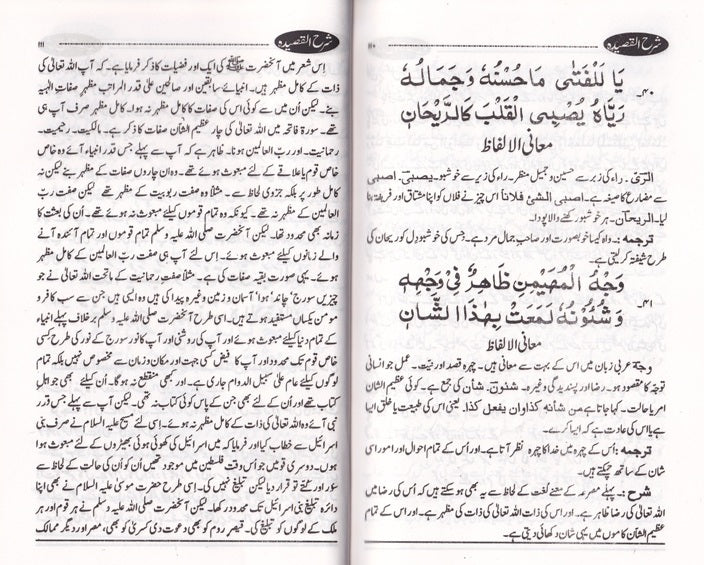 شرح القصیدہ
۱۱۰
۴۰۔ يَا لَلْفَتٰى مَا حُسْنُهٗ وَجَمَالُهٗ
رَيَّاهُ يُصْبِى الْقَلْبَ كَالرَّيْحَانِ
معانی الالفاظ
الرَّیّ۔ راء کی زبر سے حسین و جمیل منظر۔ راء کی زیر سے خوشبو۔ یصبی۔ اصبی
سے مضارع کا صیغہ ہے۔ اصبی الشئ فلاناً اس چیز نے فلاں کو اپنا مشتاق اور فریفتہ بنا
لیا۔ الریحان۔ ہر خوشبو رکھنے والا پودا۔
ترجمہ:۔ واہ کیا خوبصورت اور صاحب جمال مرد ہے۔ جس کی خوشبو دل کو ریحان کی
طرح شیفتہ کر لیتی ہے۔
۴۱۔ وَجْهُ الْمُهَيْمِنِ ظَاهِرٌ فِىْ وَجْهِهٖ
وَشُئُوْنُهٗ لَمَعَتْ بِهٰذَا الشَّانِ
معانی الالفاظ
وجهٌ عربی زبان میں اس کے بہت سے معانی ہیں۔ چہرہ قصد اور نیّت۔ عمل جو انسانی
توجہ کا مقصود ہو۔ رضا اور پسندیدگی وغیرہ۔ شئون۔ شان کی جمع ہے۔ کوئی عظیم الشان
امر یا حالت۔ کہا جاتا ہے من شانہ کذا وان یفعل کذا۔ یعنی اس کی طبیعت یا خلق ایسا
ہے یا اس کی عادت ہے کہ ایسا کرے۔
ترجمہ:۔ اُس کے چہرہ میں خدا کا چہرہ نظر آتا ہے۔ اور اُس کے تمام احوال اور امور اسی
شان کے ساتھ چمکتے ہیں۔
شرح:۔ پہلے مصرعہ کے معنے لغت کے لحاظ سے یہ بھی ہو سکتے ہیں کہ اُس کی رضا میں
اللہ تعالیٰ کی رضا ظاہر ہے۔ اور اس کی ذات اللہ تعالیٰ کی ذات کی مظہر ہے۔ اور اس کے تمام
عظیم الشان کاموں میں یہی شان دکھائی دیتی ہے۔
شرح القصیدہ
۱۱۱
اِس شعر میں آنحضرت ﷺ کی ایک اور فضیلت کا ذکر فرمایا ہے۔ کہ آپ اللہ تعالیٰ کی
ذات کے کامل مظہر ہیں۔ انبیائے سابقین اور صالحین علیٰ قدر المراتب مظہر صفاتِ الٰہیہ
بنے۔ لیکن اُن میں سے کوئی اس کی صفات کا کامل مظہر نہ ہوا۔ کامل مظہر صرف آپ ہی
تھے۔ سورۃ فاتحہ میں اللہ تعالیٰ کی چار عظیم الشان صفات کا ذکر ہے۔ مالکیت۔ رحیمیت۔
رحمانیت۔ اور ربّ العالمین ہونا۔ ظاہر ہے کہ آپ سے پہلے جس قدر انبیاء آئے وہ خاص
خاص قوم یا علاقے کے لئے مبعوث ہوئے تھے۔ وہ ان چاروں صفات کے مظہر بنے لیکن نہ
کامل طور پر بلکہ جزوی لحاظ سے۔ مثلاً وہ صفت ربوبیت کے مظہر تھے لیکن صفت ربّ
العالمین کے مظہر نہ تھے۔ کیونکہ وہ تمام قوموں کیلئے مبعوث نہ ہوئے تھے۔ اُن کی بعثت کا
زمانہ بھی محدود تھا۔ لیکن آنحضرت صلی اللہ علیہ وسلم تمام قوموں اور تمام آئندہ آنے
والے زمانوں کیلئے مبعوث ہوئے۔ اِس لئے آپ ہی صفت ربّ العالمین کے کامل مظہر
ہوئے۔ یہی صورت بقیہ صفات کی ہے۔ مثلاً صفت رحمانیت کے ماتحت اللہ تعالیٰ نے جو
چیزیں سورج' چاند' ہوا' آسمان و زمین وغیرہ پیدا کی ہیں وہ ایسی ہیں جن سے سب کافر و
مومن یکساں مستفید ہوتے ہیں۔ اسی طرح آنحضرت صلی اللہ علیہ وسلم برخلاف پہلے انبیاء
کے تمام دنیا کیلئے مبعوث ہوئے اور آپ کی روشنی اور آپ کا نور سورج کے نور کی طرح کسی
خاص قوم تک محدود اور آپ کا فیض کسی جہت اور مکان و زمان سے مخصوص نہیں بلکہ تمام
لوگوں کیلئے عام علیٰ سبیل الدوام جاری ہے۔ اور کبھی منقطع نہ ہوگا۔ اُن کیلئے بھی جو اہل
کتاب تھے اور اُن کے لئے بھی جن کے پاس کوئی کتاب نہ تھی۔ لیکن آپ سے پہلے جس قدر
نبی آئے وہ اللہ تعالیٰ کی ذات کے کامل مظہر نہ ہوئے۔ اِسی لئے مسیح علیہ السلام نے صرف بنی
اسرائیل سے خطاب کیا اور فرمایا کہ میں اسرائیل کی کھوئی ہوئی بھیڑوں کے لئے مبعوث ہوا
ہوں۔ دوسری قومیں جو اُس وقت فلسطین میں موجود تھیں اُن کو اُن کی حالت کے لحاظ سے
سؤر اور کتے تو قرار دیا لیکن تبلیغ نہیں کی۔ اِسی طرح حضرت موسیٰ علیہ السلام نے بھی اپنا
دائرہ تبلیغ بنی اسرائیل تک محدود رکھا۔ لیکن آنحضرت صلی اللہ علیہ وسلم نے ہر قوم اور ہر
ملک کے لوگوں کو تبلیغ کی۔ قیصرِ روم کو بھی دعوت دی کسریٰ کو بھی، مصر اور دیگر ممالک